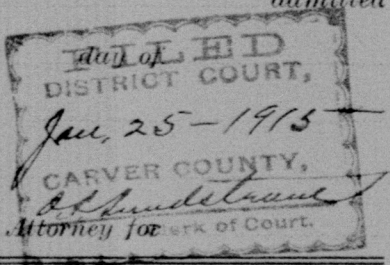 admitted
FILED
day of
DISTRICT COURT,
Jan, 25-1915
CARVER COUNTY,
Attorney for Clerk of Court.